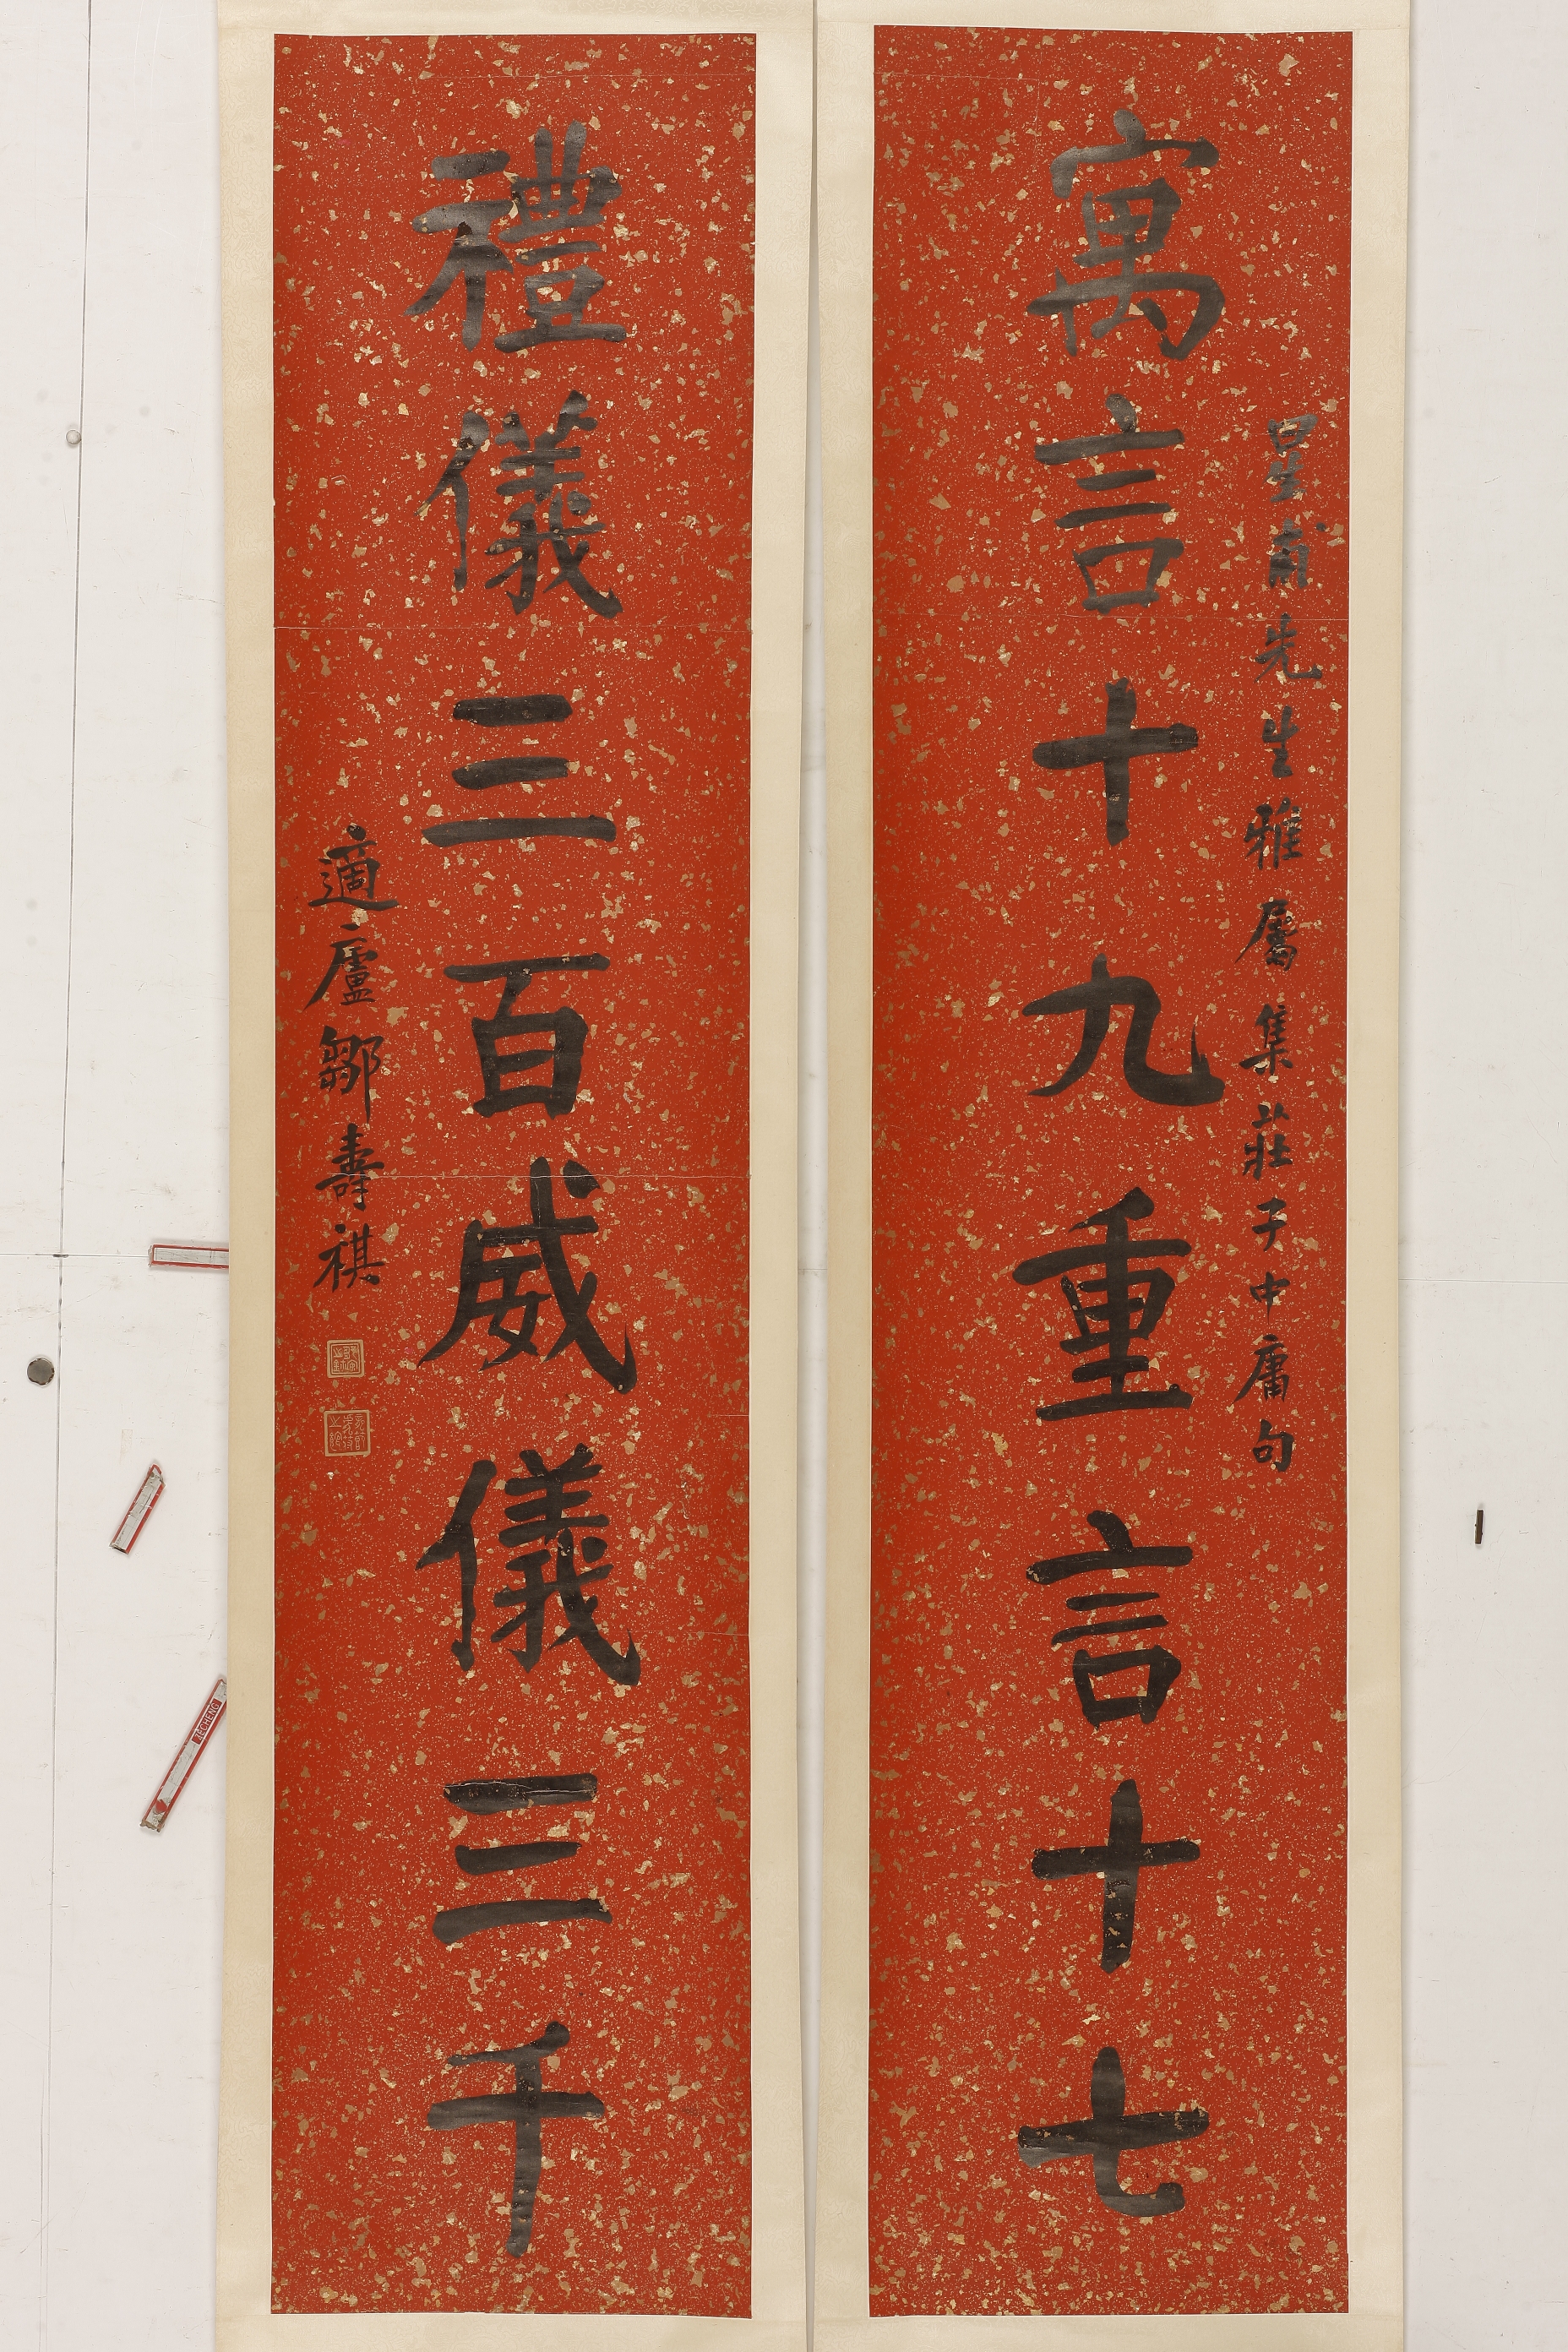 寓言十九重言十七
星甫先生雅屬集莊子中庸句
禮儀三百威儀三千
適廬鄒壽祺